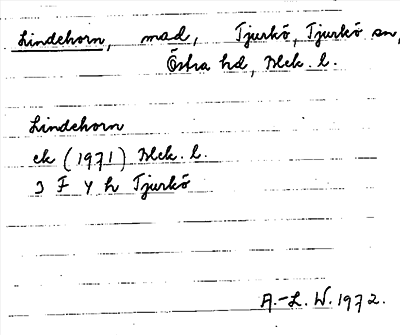 Lindehorn, mad, Tjurkö, Tjurkö sn,
Östra hd, Blek. l.
Lindehorn
ek (1971) Blek. l.
3 F y h Tjurkö
A.-L. W. 1972.